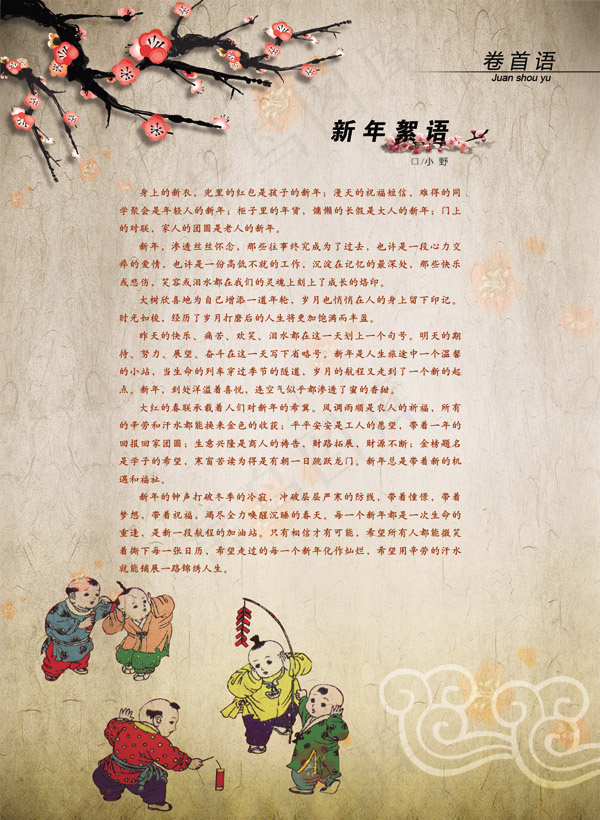 卷首语
Juan shou yu
新年絮语
口/小 野
身上的新衣，兜里的红包是孩子的新年；漫天的祝福短信，难得的同
学聚会是年轻人的新年；柜子里的年货，慵懒的长假是大人的新年；门上
的对联，家人的团圆是老人的新年。
新年，渗透丝丝怀念，那些往事终究成为了过去，也许是一段心力交
瘁的爱情，也许是一份高低不就的工作，沉淀在记忆的最深处，那些快乐
或悲伤，笑容或泪水都在我们的灵魂上刻上了成长的烙印。
大树欣喜地为自己增添一道年轮，岁月也悄悄在人的身上留下印记。
时光如梭，经历了岁月打磨后的人生将更加饱满而丰盈。
昨天的快乐、痛苦、欢笑、泪水都在这一天划上一个句号。明天的期
待、努力、展望、奋斗在这一天写下省略号。新年是人生旅途中一个温馨
的小站，当生命的列车穿过季节的隧道，岁月的航程又走到了一个新的起
点。新年，到处洋溢着喜悦，连空气似乎都渗透了蜜的香甜。
大红的春联承载着人们对新年的希冀。风调雨顺是农人的祈福，所有
的辛劳和汗水都能换来金色的收获；平平安安是工人的愿望，带着一年的
回报回家团圆；生意兴隆是商人的祷告，财路拓展，财源不断；金榜题名
是学子的希望，寒窗苦读为得是有朝一日跳跃龙门。新年总是带着新的机
遇和福祉。
新年的钟声打破冬季的冷寂，冲破层层严寒的防线，带着憧憬，带着
梦想，带着祝福，竭尽全力唤醒沉睡的春天。每一个新年都是一次生命的
重逢，是新一段航程的加油站。只有相信才有可能，希望所有人都能微笑
着撕下每一张日历，希望走过的每一个新年化作灿烂，希望用辛劳的汗水
就能铺展一路锦绣人生。